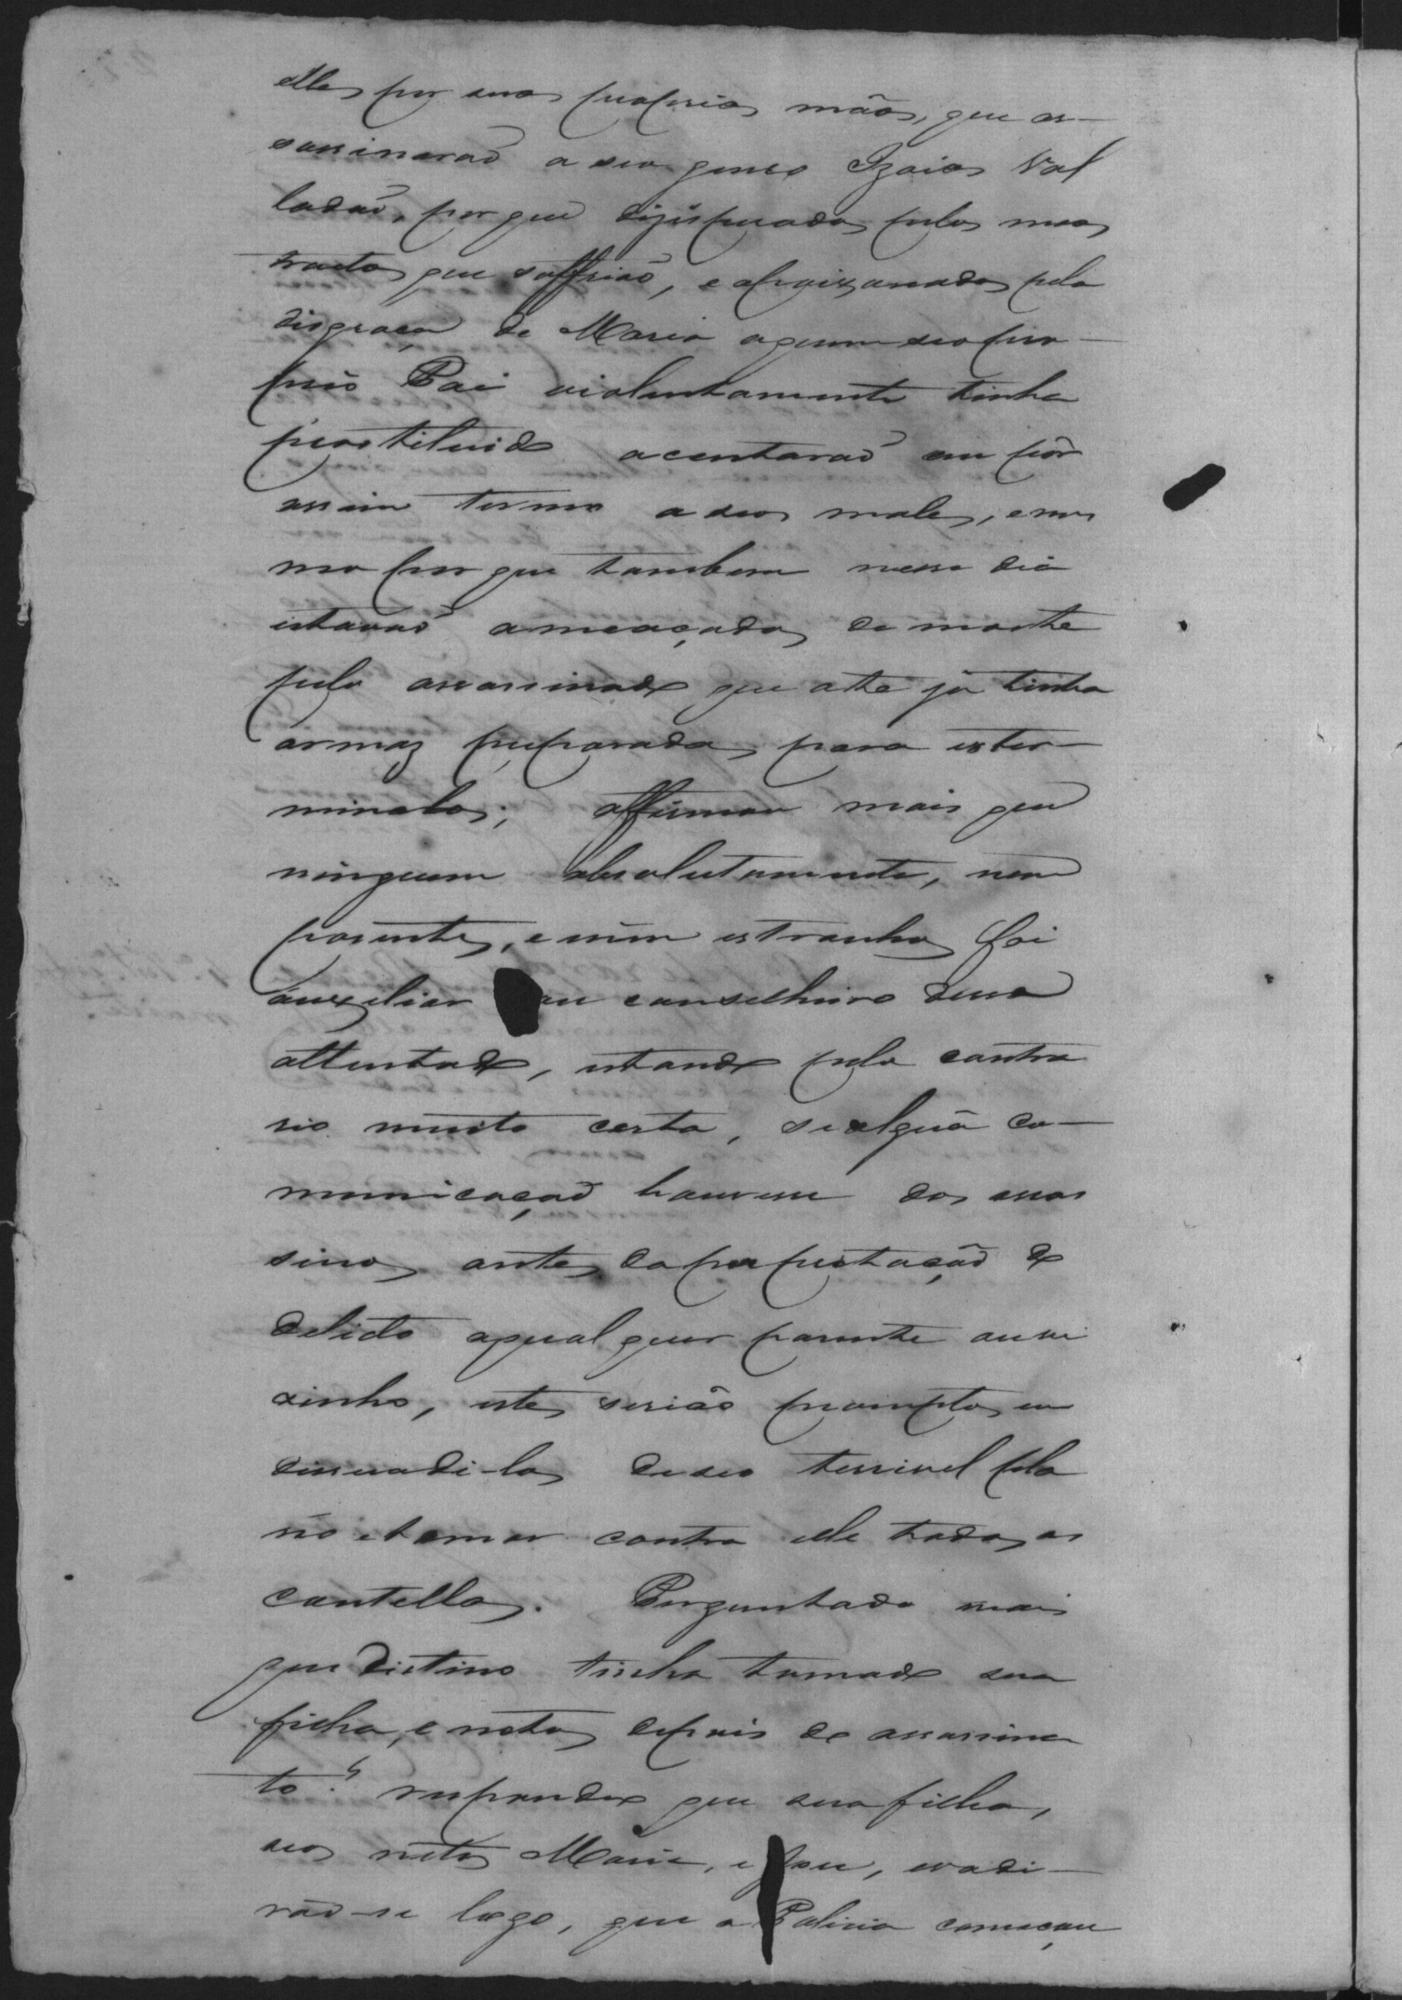 elles por suas proprias mãos, que as-
sassinaraõ a seo genro Izaias Val
ladaõ, por que dizisperados pelos maos
tractos que soffriaõ, e apaixonados pela
disgraça de Maria a quem seo pro-
prio Pai violentamente tinha
prostituido acentaraõ em pôr
assim termo a seos males, e mes
mo por que tambem nesse dia
estavaõ ameaçados de morte
pelo assassinado que athe já tinha
armas preparadas para exter-
minalos; affirmou mais que
ninguem absolutamente, nem
parentes, e nem estranhos foi
auxeliar ou conselheiro desse
attentado, estando pelo contra
rio muito certo, se alguã co-
municaçaõ houvesse dos assas
sinos antes da perpetraçaõ do
delicto a qual quer parente ou vi
zinho, estes seriaõ promptos em
dissuadi-los de seo terrivel pla
no e tomar contra elle todas as
cautellas. Perguntado mais
que distino tinha tomado sua
filha, e netos depois do assassina
to? respondeo que sua filha,
seos netos Maria, e José, evadi-
raõ-se logo, que a Policia começou